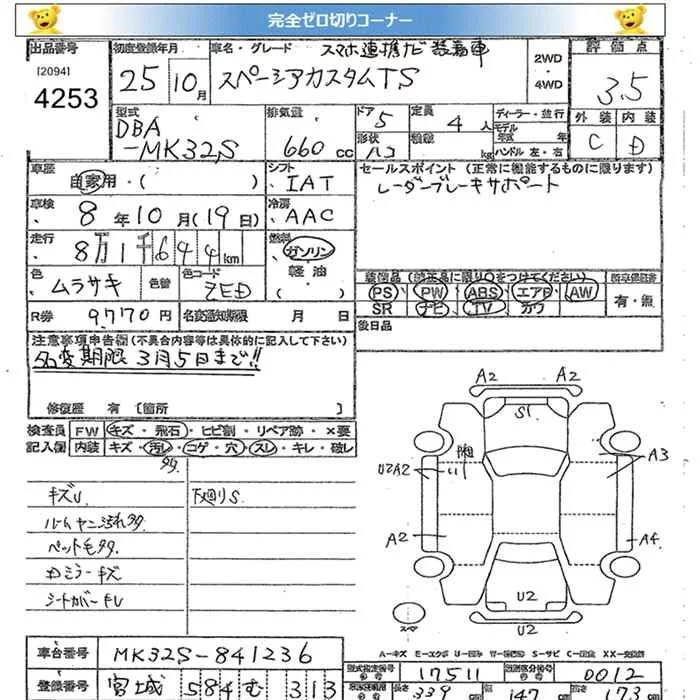 完全ゼロ切りコーナー
出品番号
[2094]
4253
初度登録年月
25 10月
車名・グレード スマホ連携ナビ装着車
スペーシアカスタムTS
2WD
・
4WD
評価点
3.5
外装 内装
C D
型式
DBA
-MK32S
排気量
660 cc
ドア 5
定員 4人
形状 ハコ
積載 kg
ディーラー・並行
モデル年式 年
ハンドル 左・右
車歴
自家用・( )
シフト
IAT
セールスポイント(正常に機能するものに限ります)
レーダーブレーキサポート
車検
8年10月(19日)
冷房
AAC
走行
8万1千644km
燃料
ガソリン
軽油
( )
色 ムラサキ
色替
色コード
ZED
装備品(純正品に限り○をつけてください)
PS・PW・ABS・エアB・AW
SR・ナビ・TV・カワ
有・無
R券 9770円
名変通知期限 月 日
後日品
注意事項申告欄(不具合内容等は具体的に記入して下さい)
名変期限3月5日まで!!
修復歴 有 [箇所 ]
検査員 FW キズ・飛石・ヒビ割・リペア跡・×要
記入欄 内装 キズ・汚レ・コゲ・穴・スレ・キレ・破レ
キズU 下廻りS
ルームヤニ汚れ多
ペット毛多
Dミラーキズ
シートカバーキレ
A2 A2
S1
U2A2
A3
A2
A4
U2
U2
スマ
A-キズ E-エクボ U-凹み W-補修跡 S-サビ C-腐食 XX-交換済
車台番号 MK32S-841236
型式指定番号 17511
類別区分番号 0012
登録番号 宮城 584 む 313
長さ 339 cm
幅 147 cm